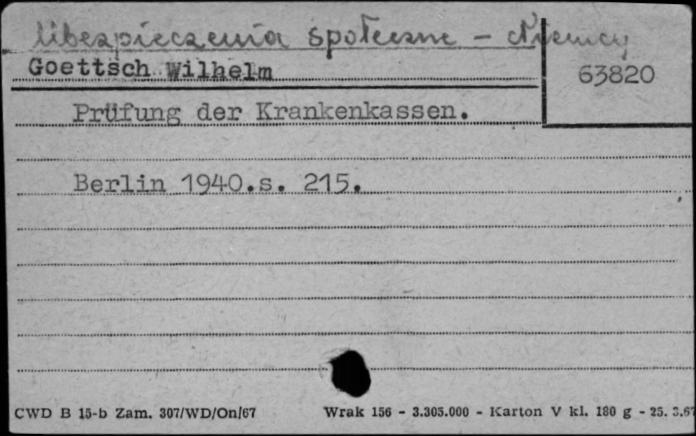 Ubezpieczenia społeczne - Niemcy
Goettsch Wilhelm
63820
Prüfung der Krankenkassen.
Berlin 1940.s. 215.
CWD B 15-b Zam. 307/WD/On/67 Wrak 156 - 3.305.000 - Karton V kl. 180 g - 25. 3.67